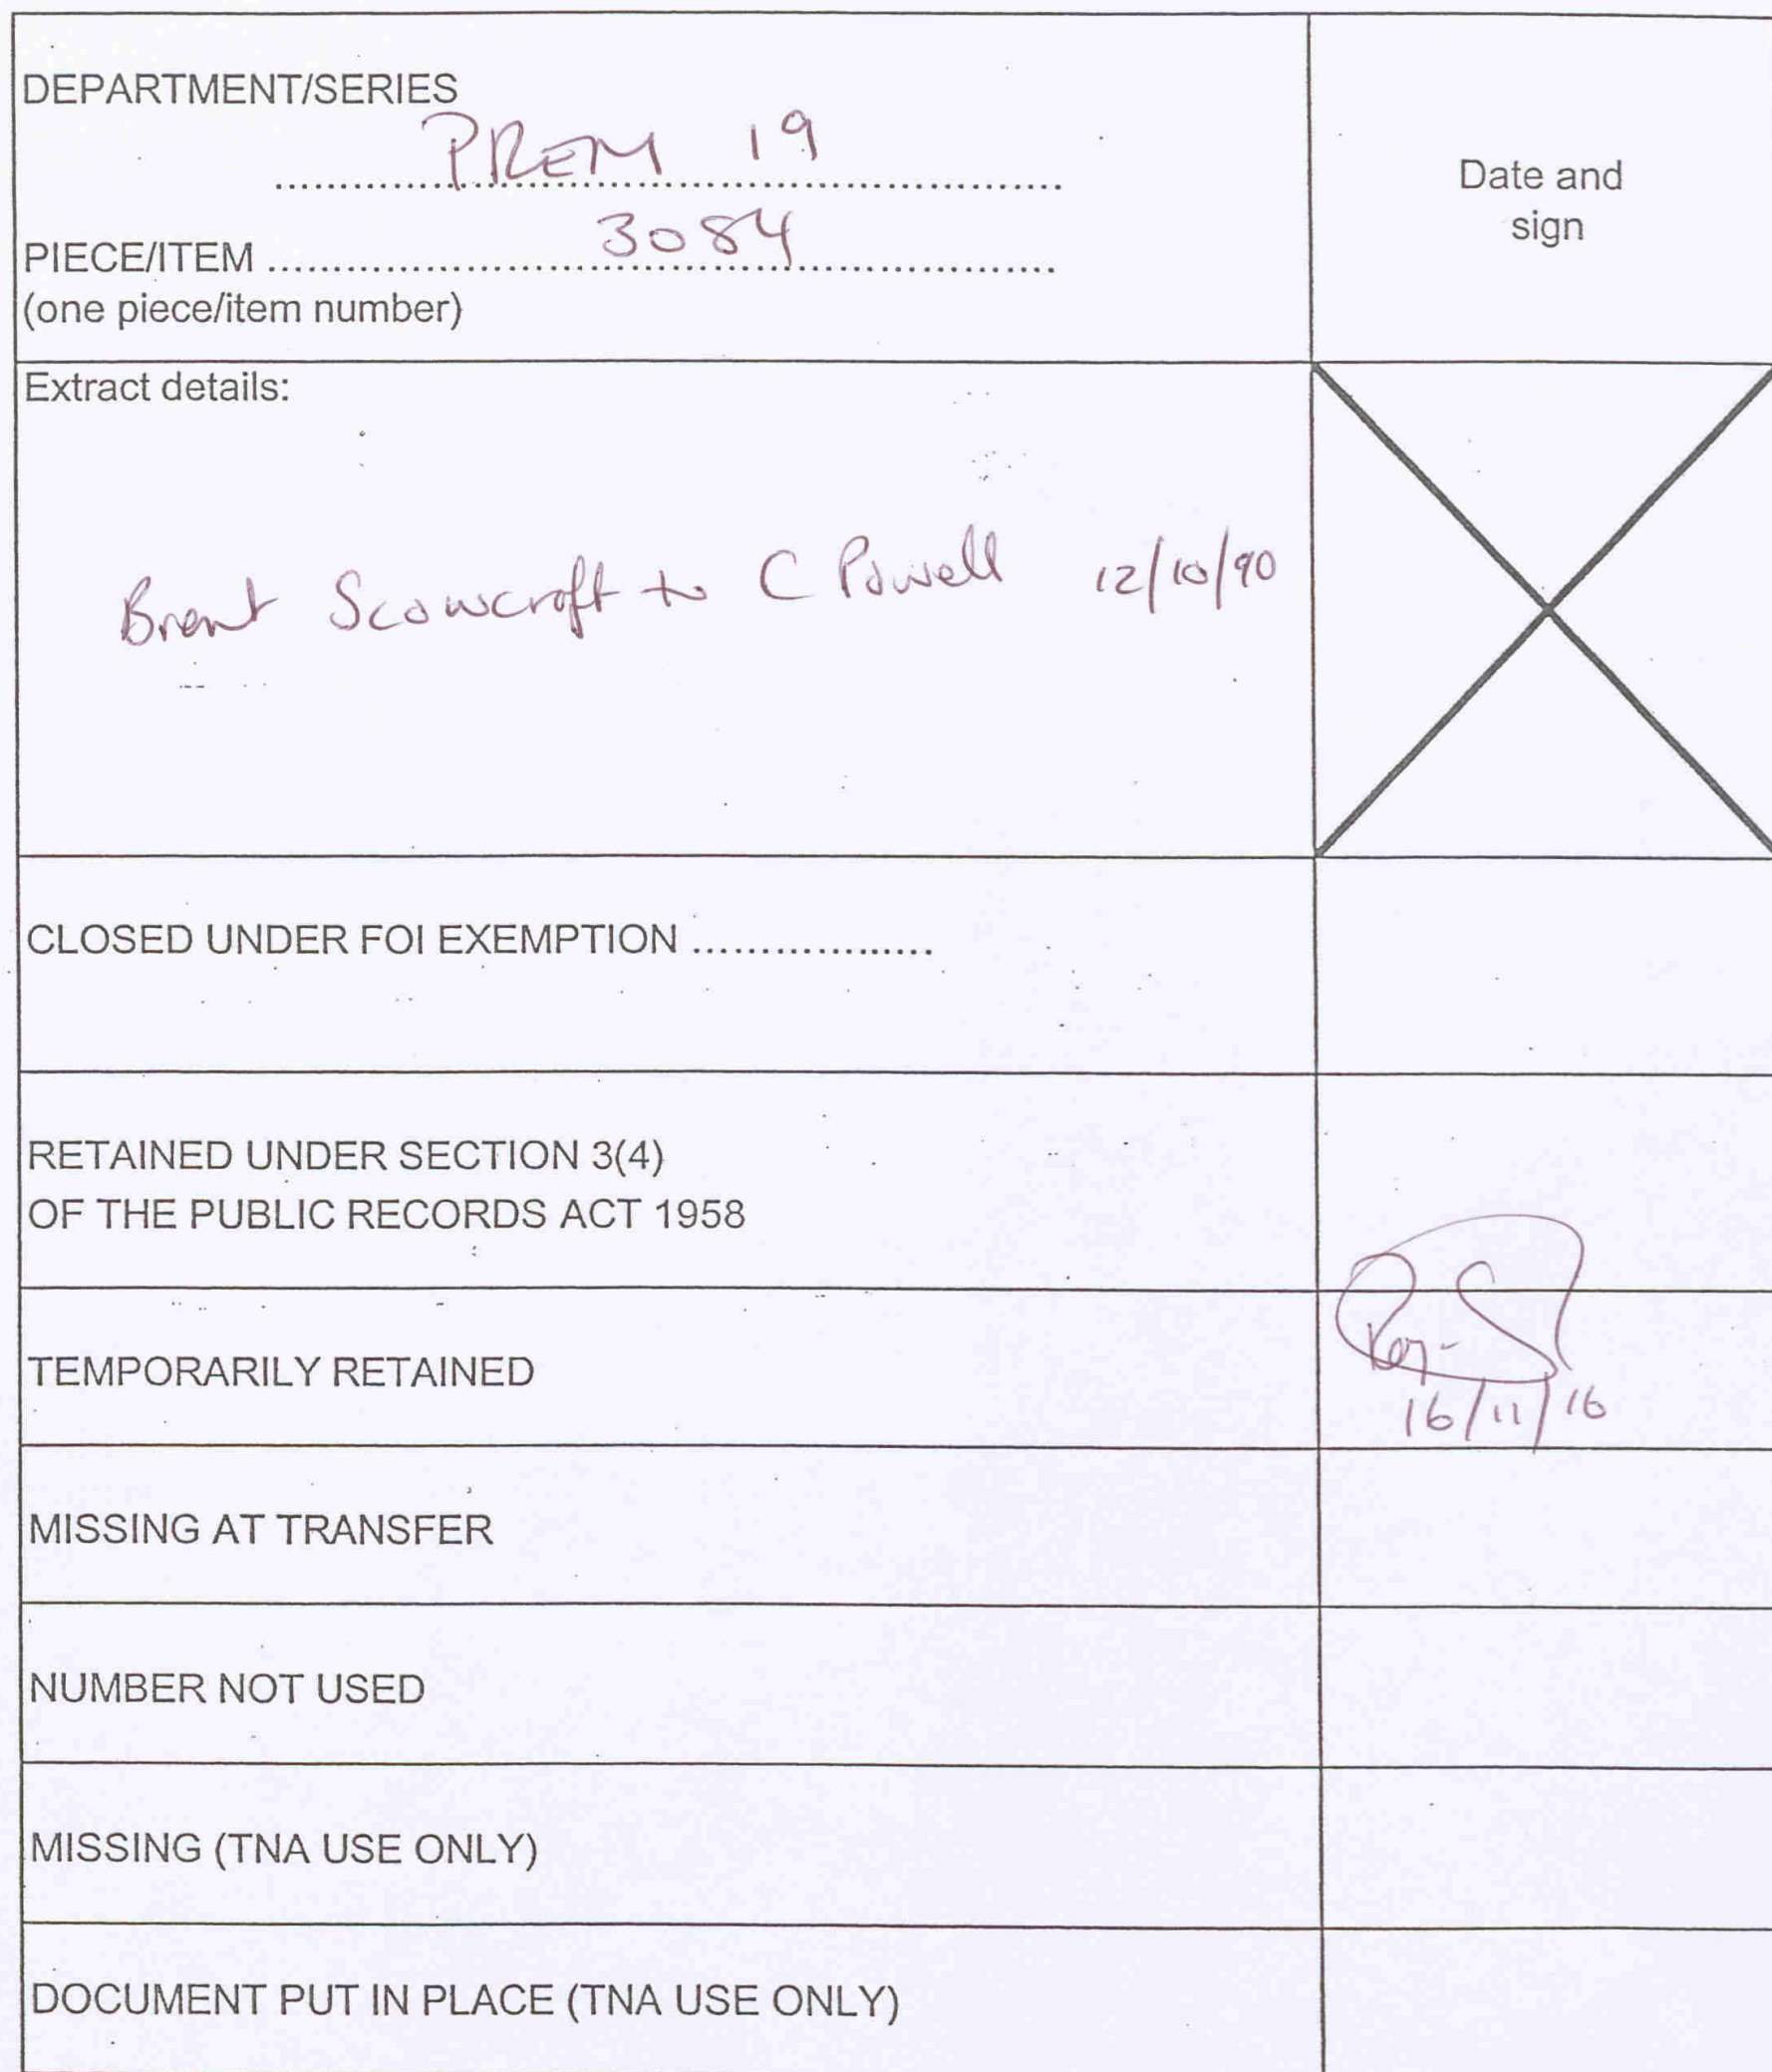 DEPARTMENT/SERIES
PREM 19
Date and
sign
PIECE/ITEM ........ 3084 ........
(one piece/item number)
Extract details:
Brent Scowcroft to C Powell 12/10/90
CLOSED UNDER FOI EXEMPTION ..................
RETAINED UNDER SECTION 3(4)
OF THE PUBLIC RECORDS ACT 1958
TEMPORARILY RETAINED
16/11/16
MISSING AT TRANSFER
NUMBER NOT USED
MISSING (TNA USE ONLY)
DOCUMENT PUT IN PLACE (TNA USE ONLY)